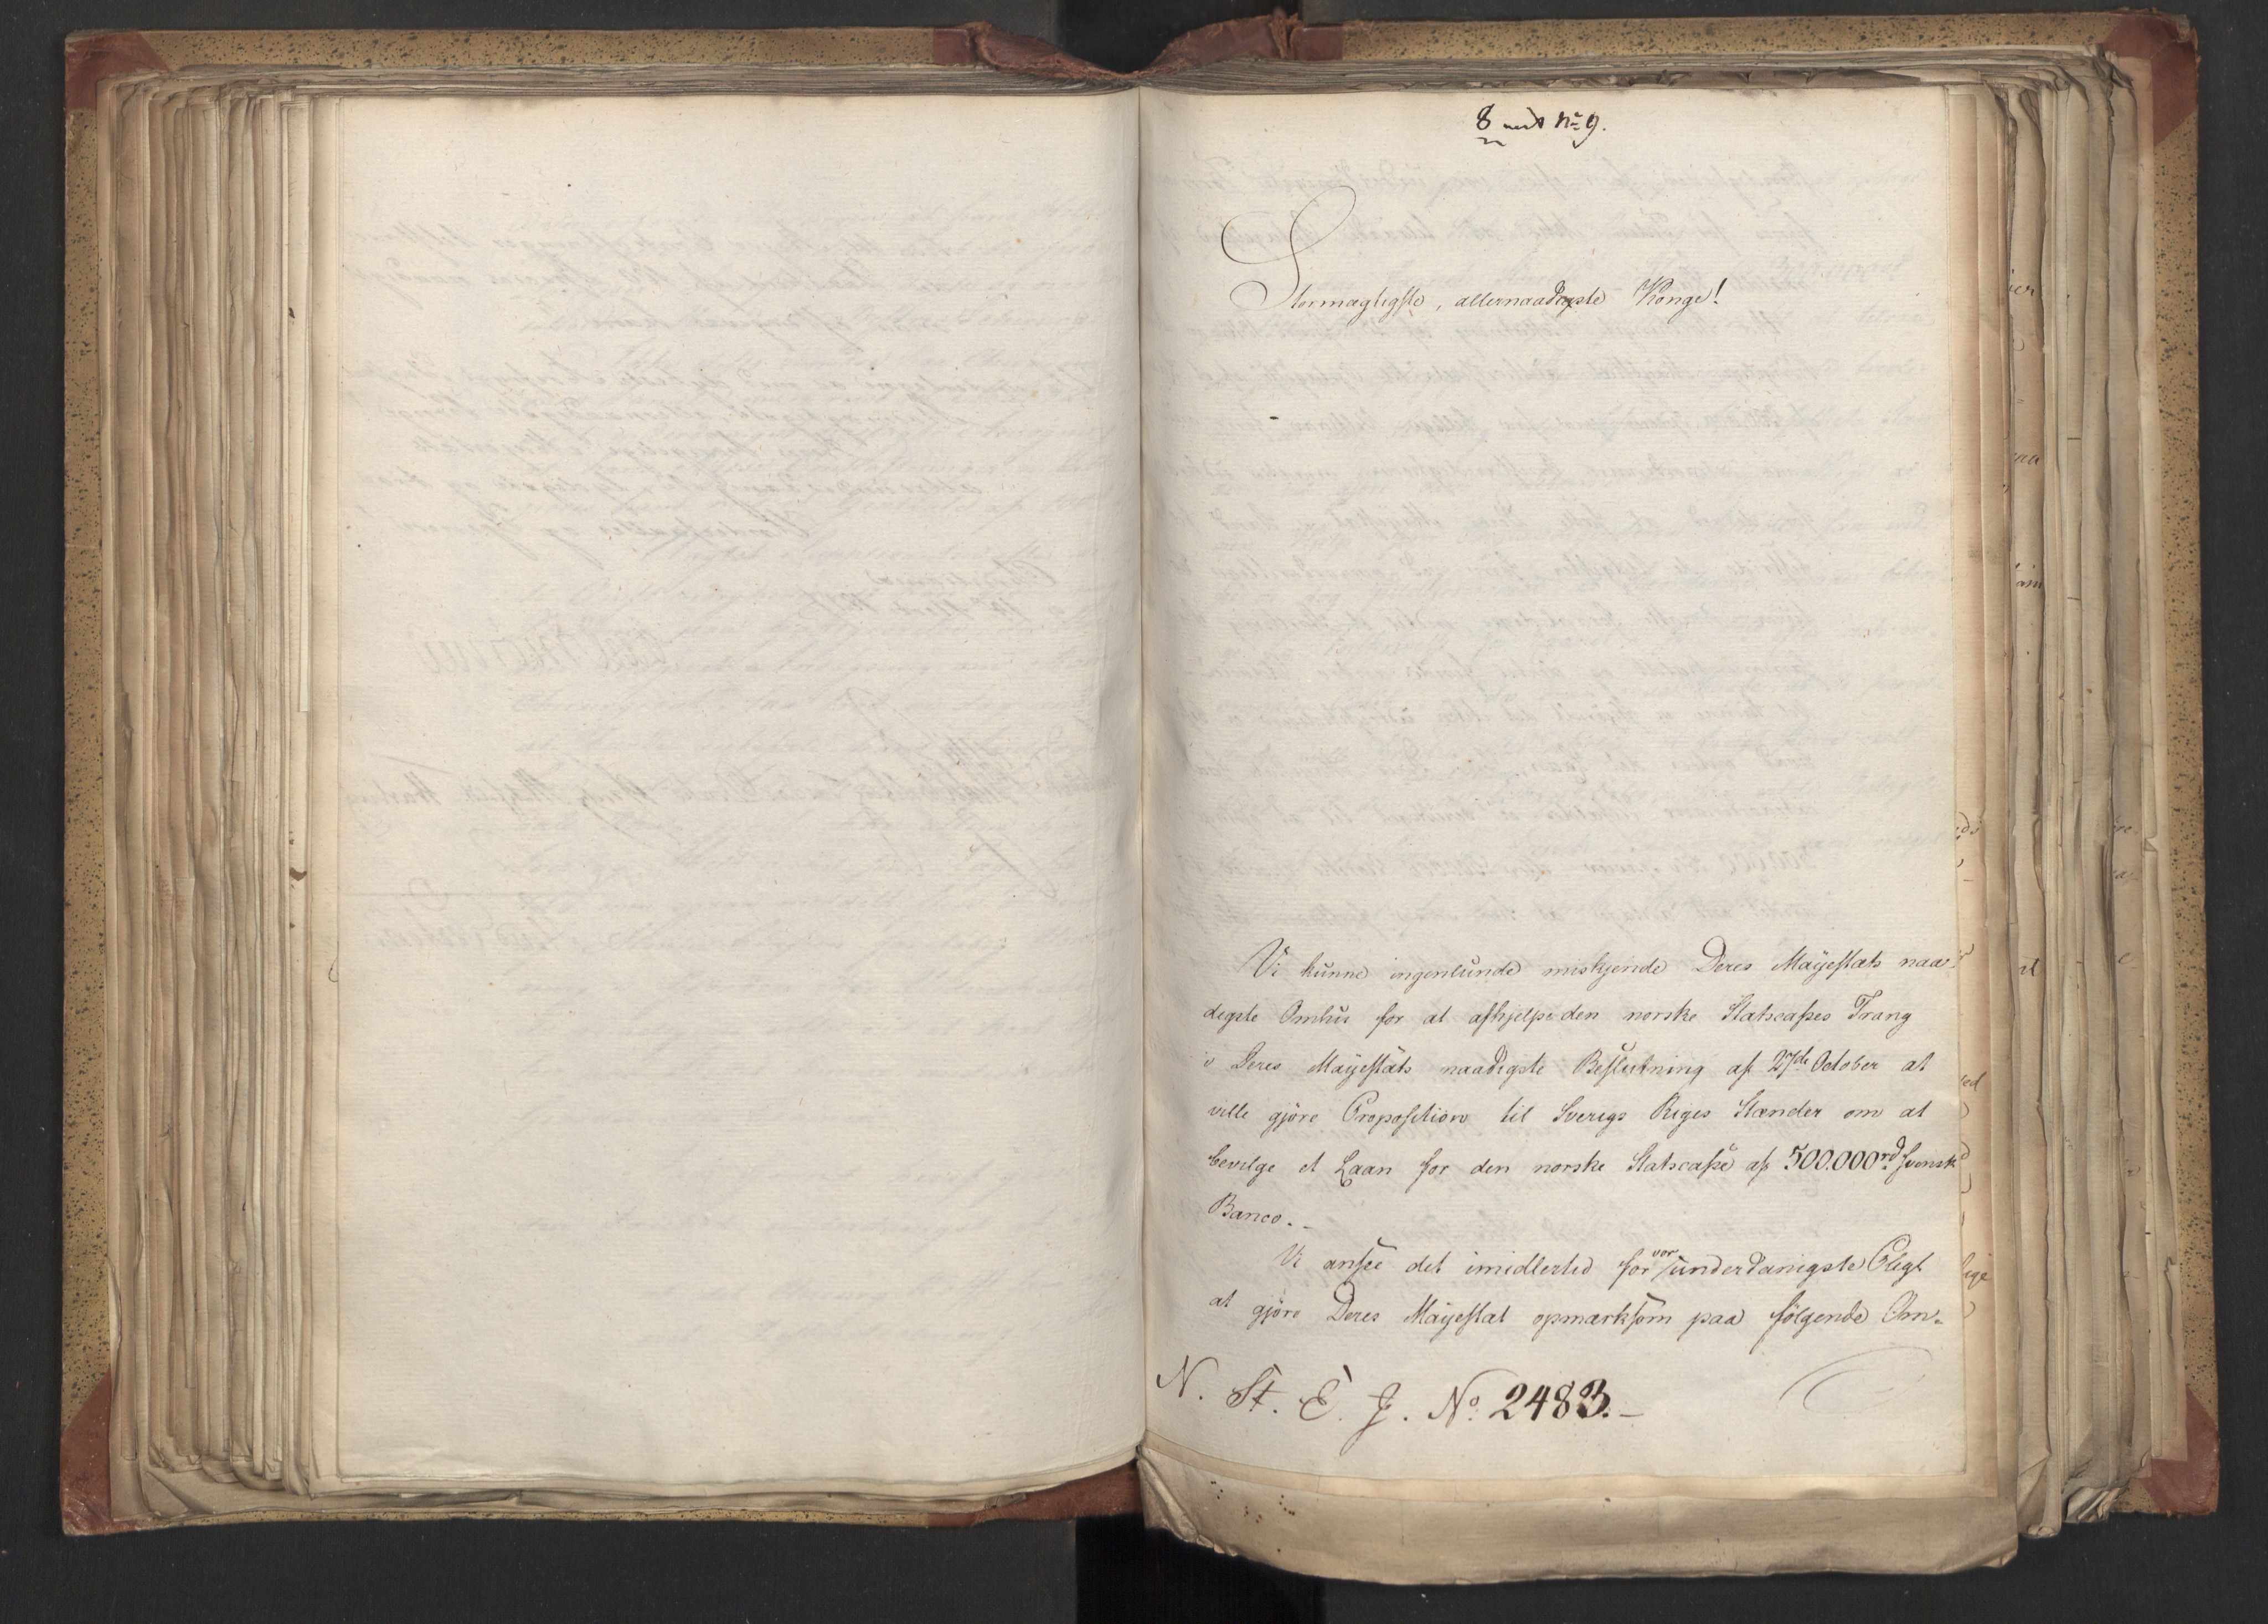 8 med No 9.
Stormægtigste, allernaadigste Konge!
Vi kunne ingenlunde miskjende Deres Mayestæts naa-
digste Omhu for at afhjelpe den norske Statscasses Trang
i Deres Mayestæts naadigste Beslutning af 27de October at
ville gjöre Proposition til Sverigs Riges Stænder om at
bevilge et Laan for den norske Statscasse af 500.000 rd Svensk
Banco. -
Vi ansee det imidlertid for vor underdanigste Pligt
at gjöre Deres Mayestæt opmærksom paa fölgende Om-
N. St. E. J. No. 2483. -